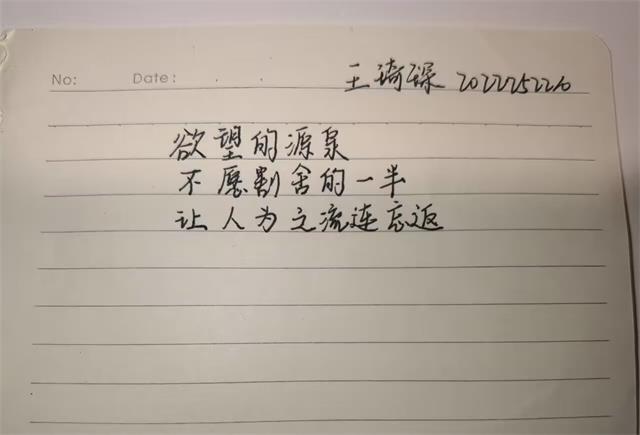 No: Date:
王琦琛 2022252210
欲望的源泉
不愿割舍的一半
让人为之流连忘返